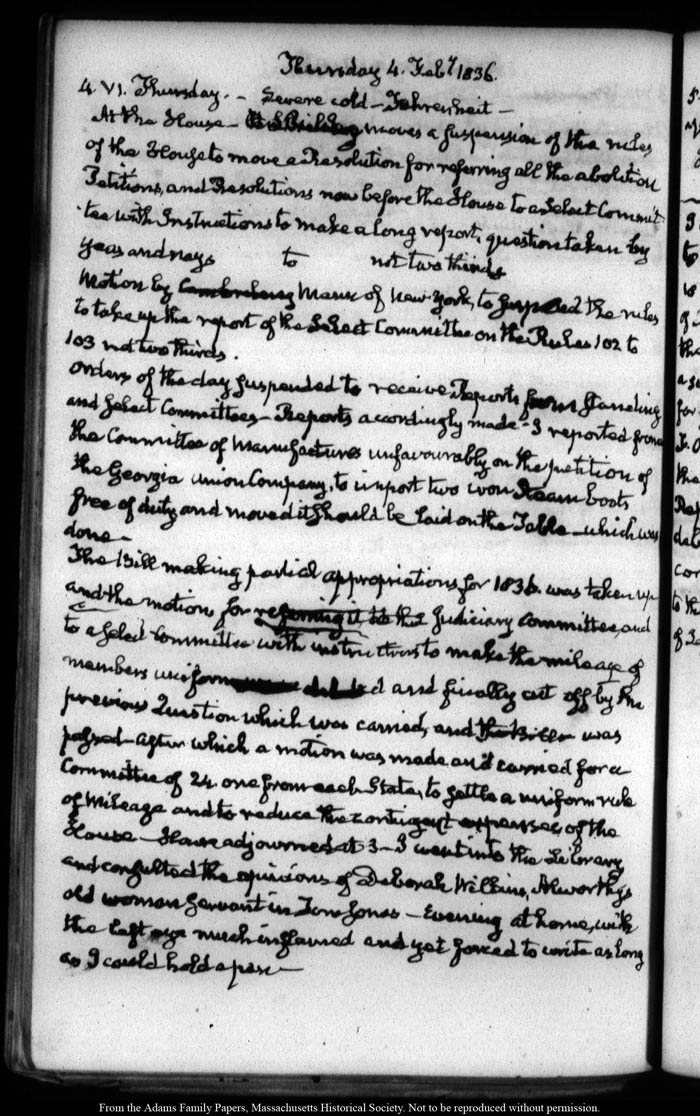 Thursday 4. Feby 1836.
4. VI. Thursday. – Severe cold – Fahrenheit –
At the House – moves a suspension of the rules
of the House to move a Resolution for referring all the abolition
Petitions, and Resolutions now before the House to a Select Commit
tee with Instructions to make a long report, question taken by
yeas and nays to not two thirds
Motion by Mann of New-York, to suspend the rules
to take up the report of the Select Committee on the Rules 102 to
103 not two thirds.
Orders of the day suspended to receive Reports from Standing
and Select Committees – Reports accordingly made – I reported from
the Committee of Manufactures unfavourably on the petition of
the Georgia Union Company, to import two iron Steam boats
free of duty and moved it should be laid on the Table – which was
done –
The Bill making partial appropriations for 1836. was taken up
and the motion for referring it to the Judiciary Committee and
to a Select Committee with instructions to make the mileage of
members uniform and finally cut off by the
previous Question which was carried, and the Bill was
passed – after which a motion was made and carried for a
Committee of 24. one from each State, to settle a uniform rule
of Mileage and to reduce the contingent expenses of the
House – House adjourned at 3 – I went into the Library
and consulted the opinions of Deborah Wilkins, Alworthy's
old woman Servant in Tom Jones – Evening at home, with
the left eye much inflamed and yet forced to write as long
as I could hold a pen –
From the Adams Family Papers, Massachusetts Historical Society. Not to be reproduced without permission.